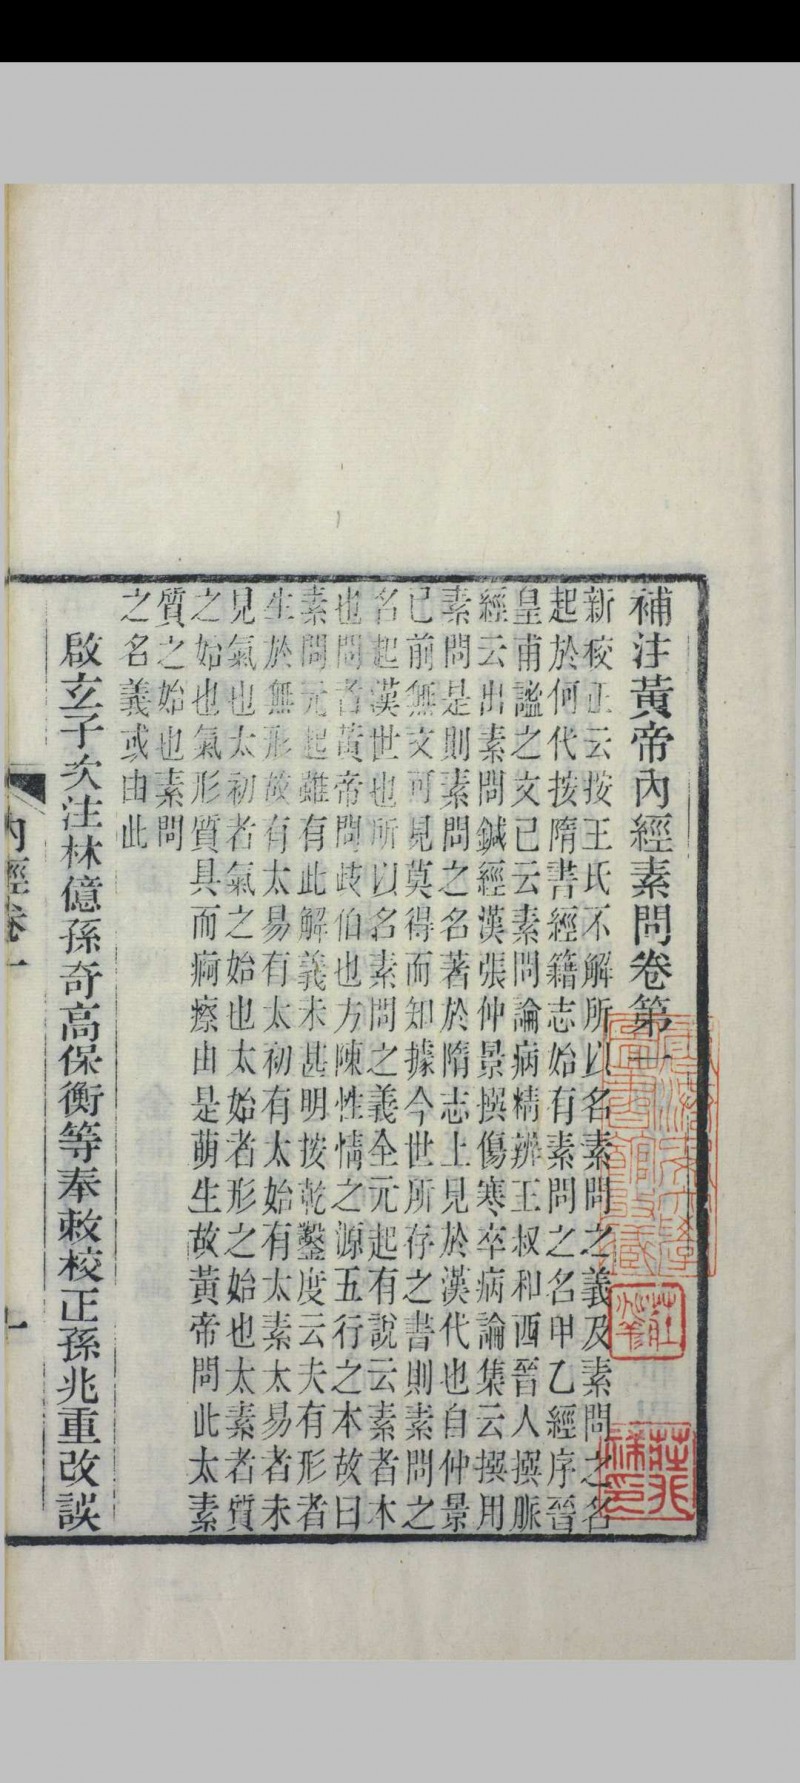 補注黃帝內經素問卷第一
新校正云按王氏不解所以名素問之義及素問之名
起於何代按隋書經籍志始有素問之名甲乙經序晉
皇甫謐之文已云素問論病精辨王叔和西晉人撰脈
經云出素問鍼經漢張仲景撰傷寒卒病論集云撰用
素問是則素問之名著於隋志上見於漢代也自仲景
已前無文可見莫得而知據今世所存之書則素問之
名起漢世也所以名素問之義全元起有說云素者本
也問者黃帝問歧伯也方陳性情之源五行之本故曰
素問元起雖有此解義未甚明按乾鑿度云夫有形者
生於無形故有太易有太初有太始有太素太易者未
見氣也太初者氣之始也太始者形之始也太素者質
之始也氣形質具而痾瘵由是萌生故黃帝問此太素
質之始也素問
之名義或由此
啟玄子次注林億孫奇高保衡等奉敕校正孫兆重改誤
內經卷一
一